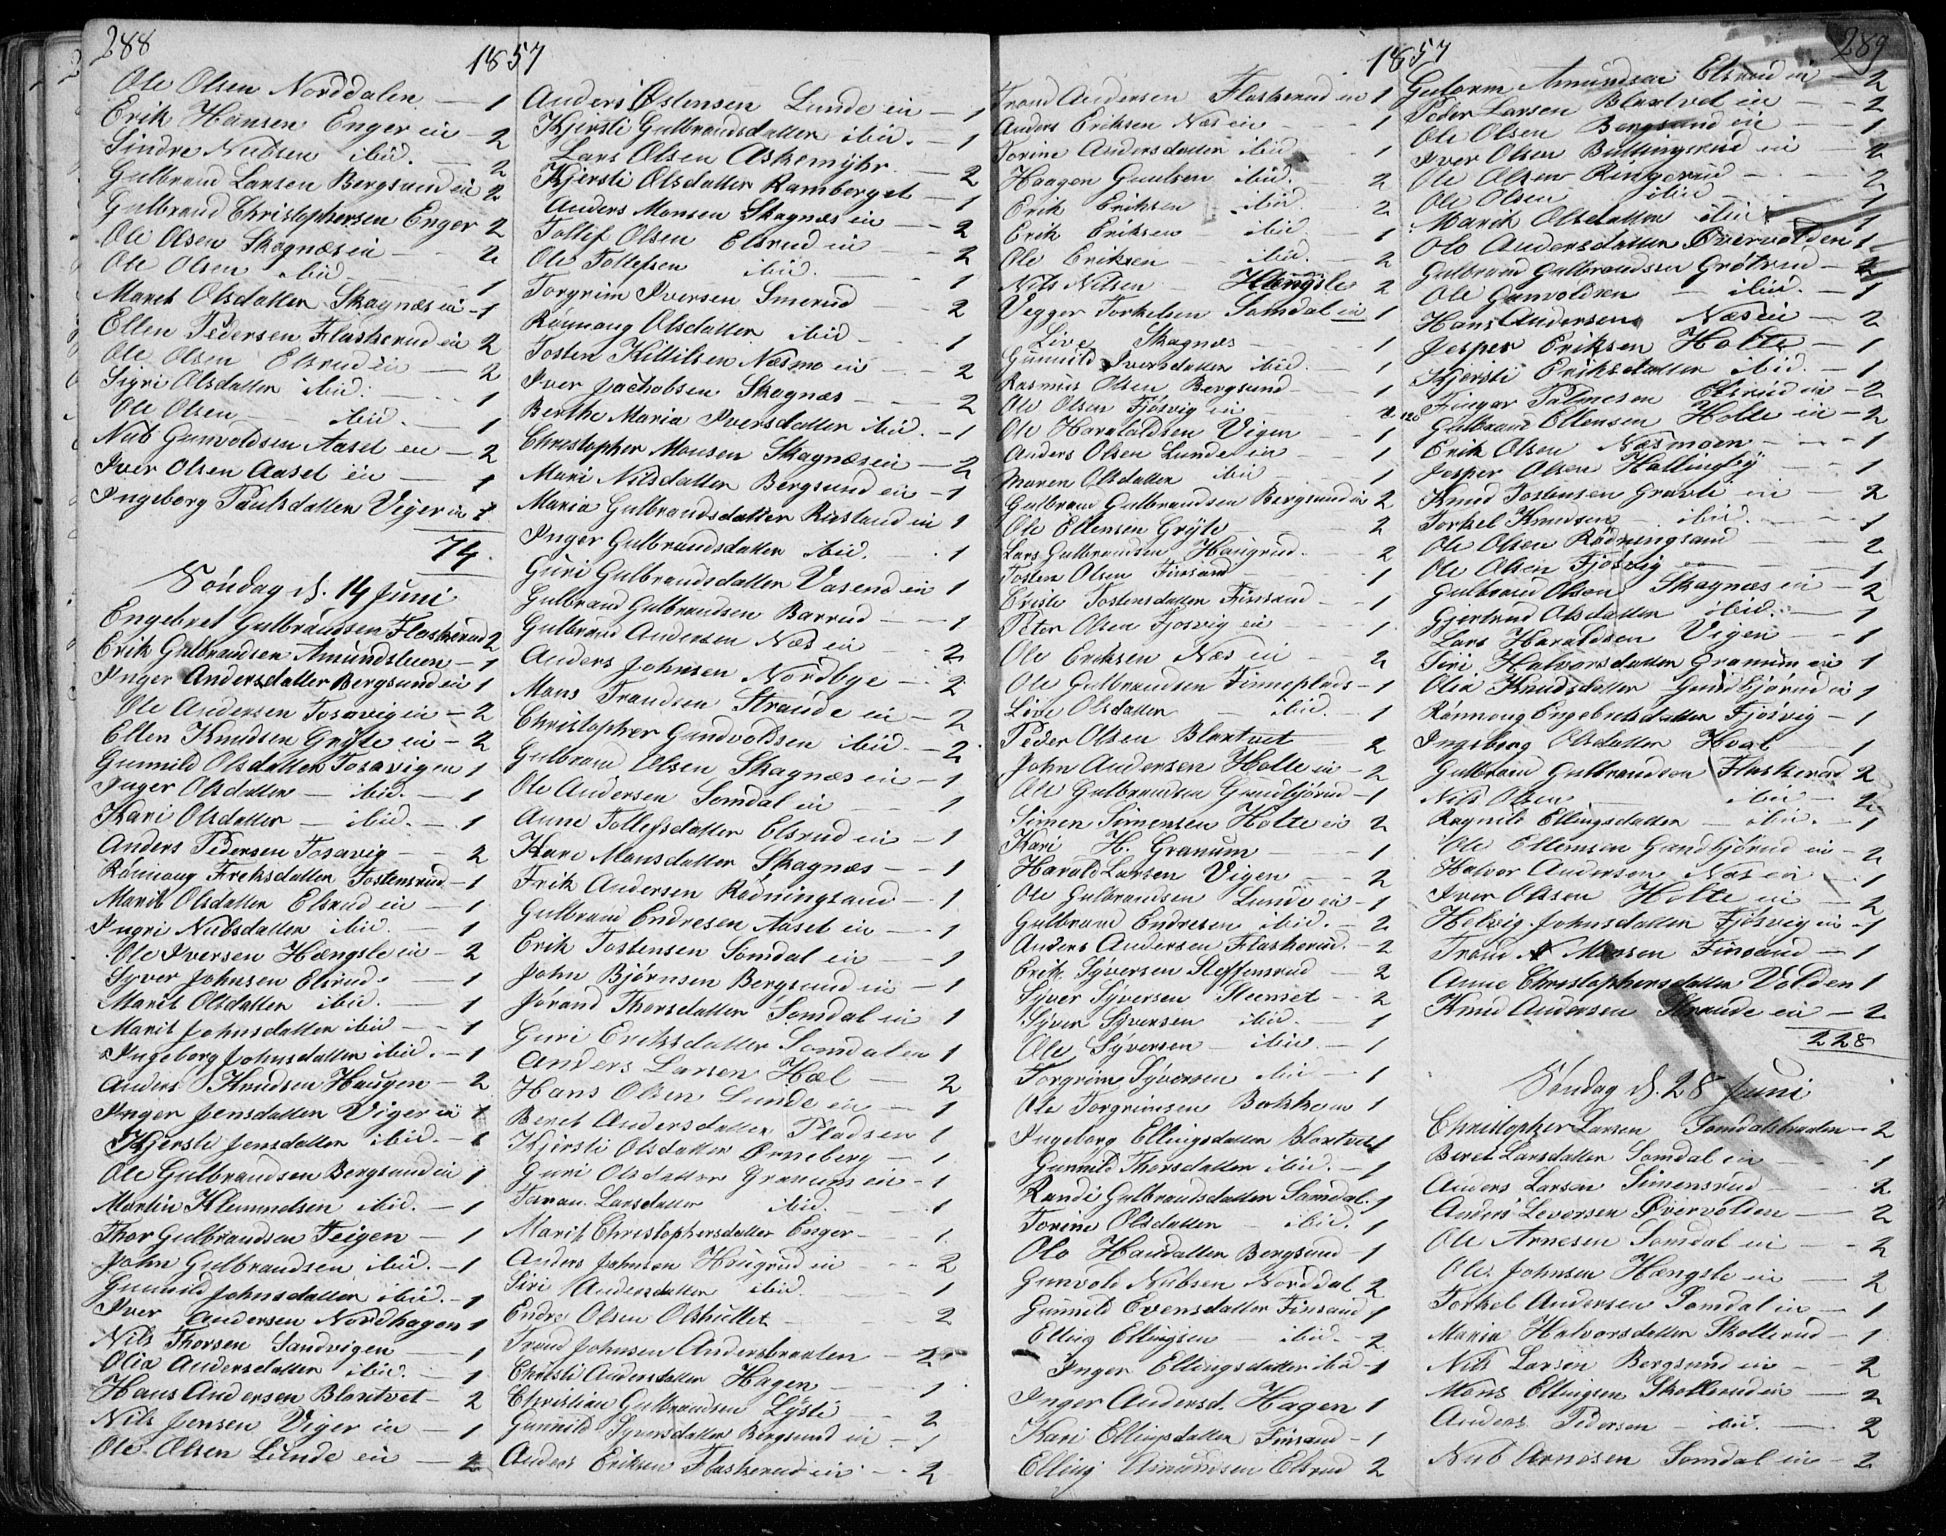 288
1857
Ole Olsen Norddalen — 1
Erik Hansen Enger ie — 2
Sindre Nubsen ibid. — 2
Gulbrand Larsen Bergsund ie 2
Gulbrand Christophersen Enger 2
Ole Olsen Skagnæs ie — 2
Ole Olsen ibid — 1
Marit Olsdatter Skagnæs ie — 1
Ellen Pedersen Flaskerud ie 2
Ole Olsen Elsrud ie — 2
Sigri Olsdatter ibid. — 1
Ole Olsen — ibid. — 1
Nub Gunvoldsen Aaset ie — 2
Iver Olsen Aaset ie — 1
Ingeborg Paulsdatter Viger ie 1
74.
Søndag d. 14 Juni
Engebret Gulbrandsen Flaskerud 2
Erik Gulbrandsen Amundsluen — 1
Inger Andersdatter Bergsund ie 1
Ole Andersen Tosavig ie — 2
Ellen Knudsen Gryte ie — 2
Gunnild Olsdatter Tosavigen 1
Inger Olsdatter — ibid. — 1
Kari Olsdatter — ibid. — 1
Anders Pedersen Tosavig — 2
Rönnoug Freksdatter Tostensrud — 1
Marit Olsdatter Elsrud ie — 1
Ingri Nubsdatter ibid. — 1
Ole Iversen Hængsle ie — 2
Syver Johnsen Elsrud — 1
Marit Olsdatter ibid. — 1
Marit Johnsdatter ibid — 1
Ingeborg Johnsdatter ibid. — 1
Anders Knudsen Haugen — 2
Inger Jensdatter Viger ie 1
Kjersti Jensdatter ibid. — 1
Ole Gulbrandsen Bergsund ie 1
Martin Klemmetsen ibid. — 1
Thor Gulbrandsen Teigen — 1
John Gulbrandsen ibid. — 1
Gunnild Johnsdatter ibid. — 1
Iver Andersen Nordhagen 1
Nils Thorsen Sandvigen — 1
Olia Andersdatter ibid. — 1
Hans Andersen Blaxtvet — 2
Nils Jensen Viger ie — 1
Ole Olsen Lunde ie — 2
Anders Østensen Lunde ie — 1
Kjersti Gulbrandsdatter ibid. — 1
Lars Olsen Askemyhr — 2
Kjersti Olsdatter Ramberget — 1
Anders Monsen Skagnæs ie — 2
Tollef Olsen Elsrud ie — 2
Ole Tollefsen ibid. — 1
Torgrim Iversen Smerud 2
Rönnoug Olsdatter ibid — 1
Tosten Kittilsen Næsmo ie — 2
Iver Jachobsen Skagnæs — 2
Berthe Maria Iversdatter ibid. — 1
Christopher Monsen Skagnæs ie — 2
Mari Nilsdatter Bergsund ie — 1
Maria Gulbrandsdatter Rustand ie 1
Inger Gulbrandsdatter ibid. 1
Guri Gulbrandsdatter Vasend ie 1
Gulbrand Gulbrandsen Barrud — 1
Gulbrand Andersen Næs ie 2
Anders Johnsen Nordbye — 2
Mons Trandsen Strande ie — 2
Christopher Gundvoldsen ibid. — 2
Gulbrand Olsen Skagnæs ie — 1
Ole Andersen Somdal ie — 1
Anne Tollefsdatter Elsrud ie — 1
Kari Monsdatter Skagnæs — 1
Erik Andersen Rødningsand — 1
Gulbrand Endresen Aaset ie — 1
Erik Tostensen Somdal ie — 1
John Bjørnsen Bergsund ie — 1
Jörand Thorsdatter Somdal ie 1
Guri Eriksdatter Somdalen 1
Anders Larsen Hæl — 2
Hans Olsen Lunde ie — 1
Beret Andersdatter Pladsen 1
Kjersti Olsdatter Ørneberg — 1
Guri Olsdatter Granum ie — 1
Larsdatter ibid. — 1
Marit Christophersdatter Enger — 1
Anders Johnsen Haugrud ie — 2
Siri Andersdatter ibid. 1
Endre Olsen Olshullet — 2
Trond Johnsen Andersbraaten — 2
Christi Andersdatter Hagen — 1
Christian Gulbrandsen Lysti — 2
Gunnild Syversdatter Bergsund ie — 1
Anders Eriksen Flaskerud ie — 2
289
1857
Trond Andersen Flaskerud ie 1
Anders Eriksen Næs ie — 1
Torine Andersdatter ibid — 1
Haagen Guulsen ibid. — 2
Erik Eriksen ibid. 2
Erik Eriksen ibid. — 1
Ole Eriksen — ibid. — 2
Nils Nilsen Hængsle 2
Vegger Torkelsen Somdal ie 1
Live Skagnæs — 1
Gunnild Iversdatter ibid. — 1
Rasmus Olsen Bergsund — 1
Ole Olsen Fjösvig ie —
Ole Haraldsen Vigen — 1
Anders Olsen Lunde ie — 1
Maren Olsdatter ibid — 1
Gulbrand Gulbrandsen Bergsund ie 2
Ole Ellensen Gryte — 2
Lars Gulbrandsen Haugrud. — 2
Tosten Olsen Finsand — 1
Tostensdatter Finsand — 1
Peter Olsen Fjösvig ie — 1
Ole Eriksen Næs ie — 2
Ole Gulbrandsen Finneplads — 1
Live Olsdatter — ibid. — 1
Peder Olsen Blaxtvet 2
John Andersen Holte ie — 2
Ole Gulbrandsen Gundbjörud — 1
Simen Simensen Holte ie 2
Kari H. Granum — 1
Harald Larsen Vigen — 2
Ole Gulbrandsen Lunde ie — 1
Gulbrand Endresen ibid. — 2
Anders Andersen Flaskerud. — 2
Erik Syversen Steffensrud — 2
Syver Syversen Sleenset — 2
Syver Syversen ibid. — 1
Ole Syversen — ibid. — 1
Torgrim Syversen ibid — 1
Ole Torgrimsen Bakken 1
Ingeborg Ellingsdatter Blaxtvet 1
Gunnild Thorsdatter ibid. — 1
Randi Gulbrandsdatter Somdal. 1
Torine Olsdatter — ibid. 1
Olo Hansdatter Bergsund — 1
Gunvold Nubsen Norddal 2
Gunnild Evensdatter Finsand 1
Elling Ellingsen — ibid. — 2
Inger Ellingsdatter ibid — 1
Inger Andersd. Hagen 1
Kari Ellingsdatter Finsand — 1
Elling Amundsen Elsrud 2
Guttorm Amundsen Elsrud ie — 2
Peder Larsen Blaxtvet ie — 2
Ole Olsen Bergsund ie — 1
Iver Olsen Buttingsrud ie — 2
Ole Olsen Ringerud — 2
Ole Olsen ibid — 1
Marit Olsdatter ibid 1
Olo Andersdatter Øvervolden 1
Gulbrand Gulbrandsen Grøtrud — 2
Ole Gunvoldsen — ibid. — 1
Hans Andersen Næs ie — 2
Jesper Eriksen Holte — 1
Kjersti Eriksdatter ibid. — 1
Fingar Palmesen Elsrud ie — 2
Gulbrand Ellensen Holte ie — 2
Erik Olsen Næsmoen — 1
Jesper Olsen Hallingby — 1
Knud Tostensen Gravli ie — 2
Torkel Knudsen — ibid. — 1
Ole Olsen Rødningsand — 2
Ole Olsen Fjösvig — 1
Gulbrand Olsen Skagnæs ie — 2
Gjertrud Olsdatter ibid. — 1
Lars Haraldsen Vigen — 1
Siri Halvorsdatter Granum ie 1
Olia Knudsdatter Gundbjørud ie 1
Rönnoug Engebretsdatter Fjösvig — 1
Ingeborg Olsdatter Hval — 1
Gulbrand Gulbrandsen Flaskerud 2
Nils Olsen ibid — 2
Ragnild Ellingsdatter — ibid. — 1
Ole Ellensen Gundbjørud ie — 2
Halvor Andersen Næs ie — 1
Iver Olsen Holte ie — 2
Helvig Johnsdatter Fjösvig ie — 1
Trond Monsen Finsand — 1
Anne Christophersdatter Volden 1
Knud Andersen Strande ie — 2
228
Søndag d. 28 Juni
Christopher Larsen Somdalsbraaten — 2
Beret Larsdatter Somdal ie — 1
Anders Larsen Simensrud — 2
Anders Leversen Øvervolden — 2
Ole Arnesen Somdal ie — 2
Ole Johnsen Hængsle ie — 2
Torkel Andersen Somdal ie — 1
Maria Halvorsdatter Skollerud — 1
Nils Larsen Bergsund ie — 2
Mons Ellingsen Skollerud ie — 2
Anders Pedersen — ibid. — 2
Nub Arnesen Somdal ie — 2